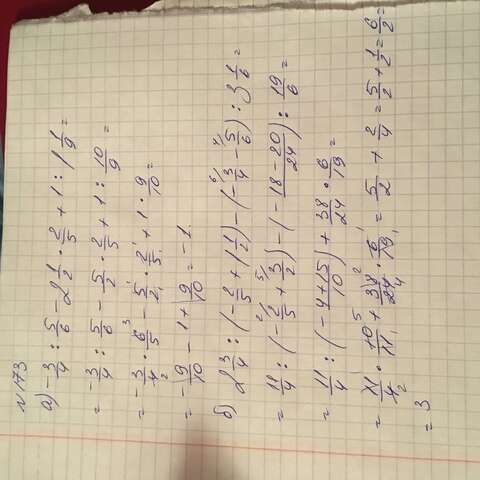 №173
а) -3/4 : 5/6 - 2 1/2 · 2/5 + 1 : 1 1/9 =
= -3/4 : 5/6 - 5/2 · 2/5 + 1 : 10/9 =
= -3/4 · 6/5 - 5/2 · 2/5 + 1 · 9/10 =
= -9/10 - 1 + 9/10 = -1
б) 2 3/4 : (-2/5 + 1 1/2) - (-3/4 - 5/6) : 3 1/6 =
= 11/4 : (-2/5 + 3/2) - (-18-20/24) : 19/6 =
= 11/4 : (-4+15/10) + 38/24 · 6/19 =
= 11/4 · 10/11 + 38/24 · 6/19 = 5/2 + 2/4 = 5/2 + 1/2 = 6/2 =
= 3